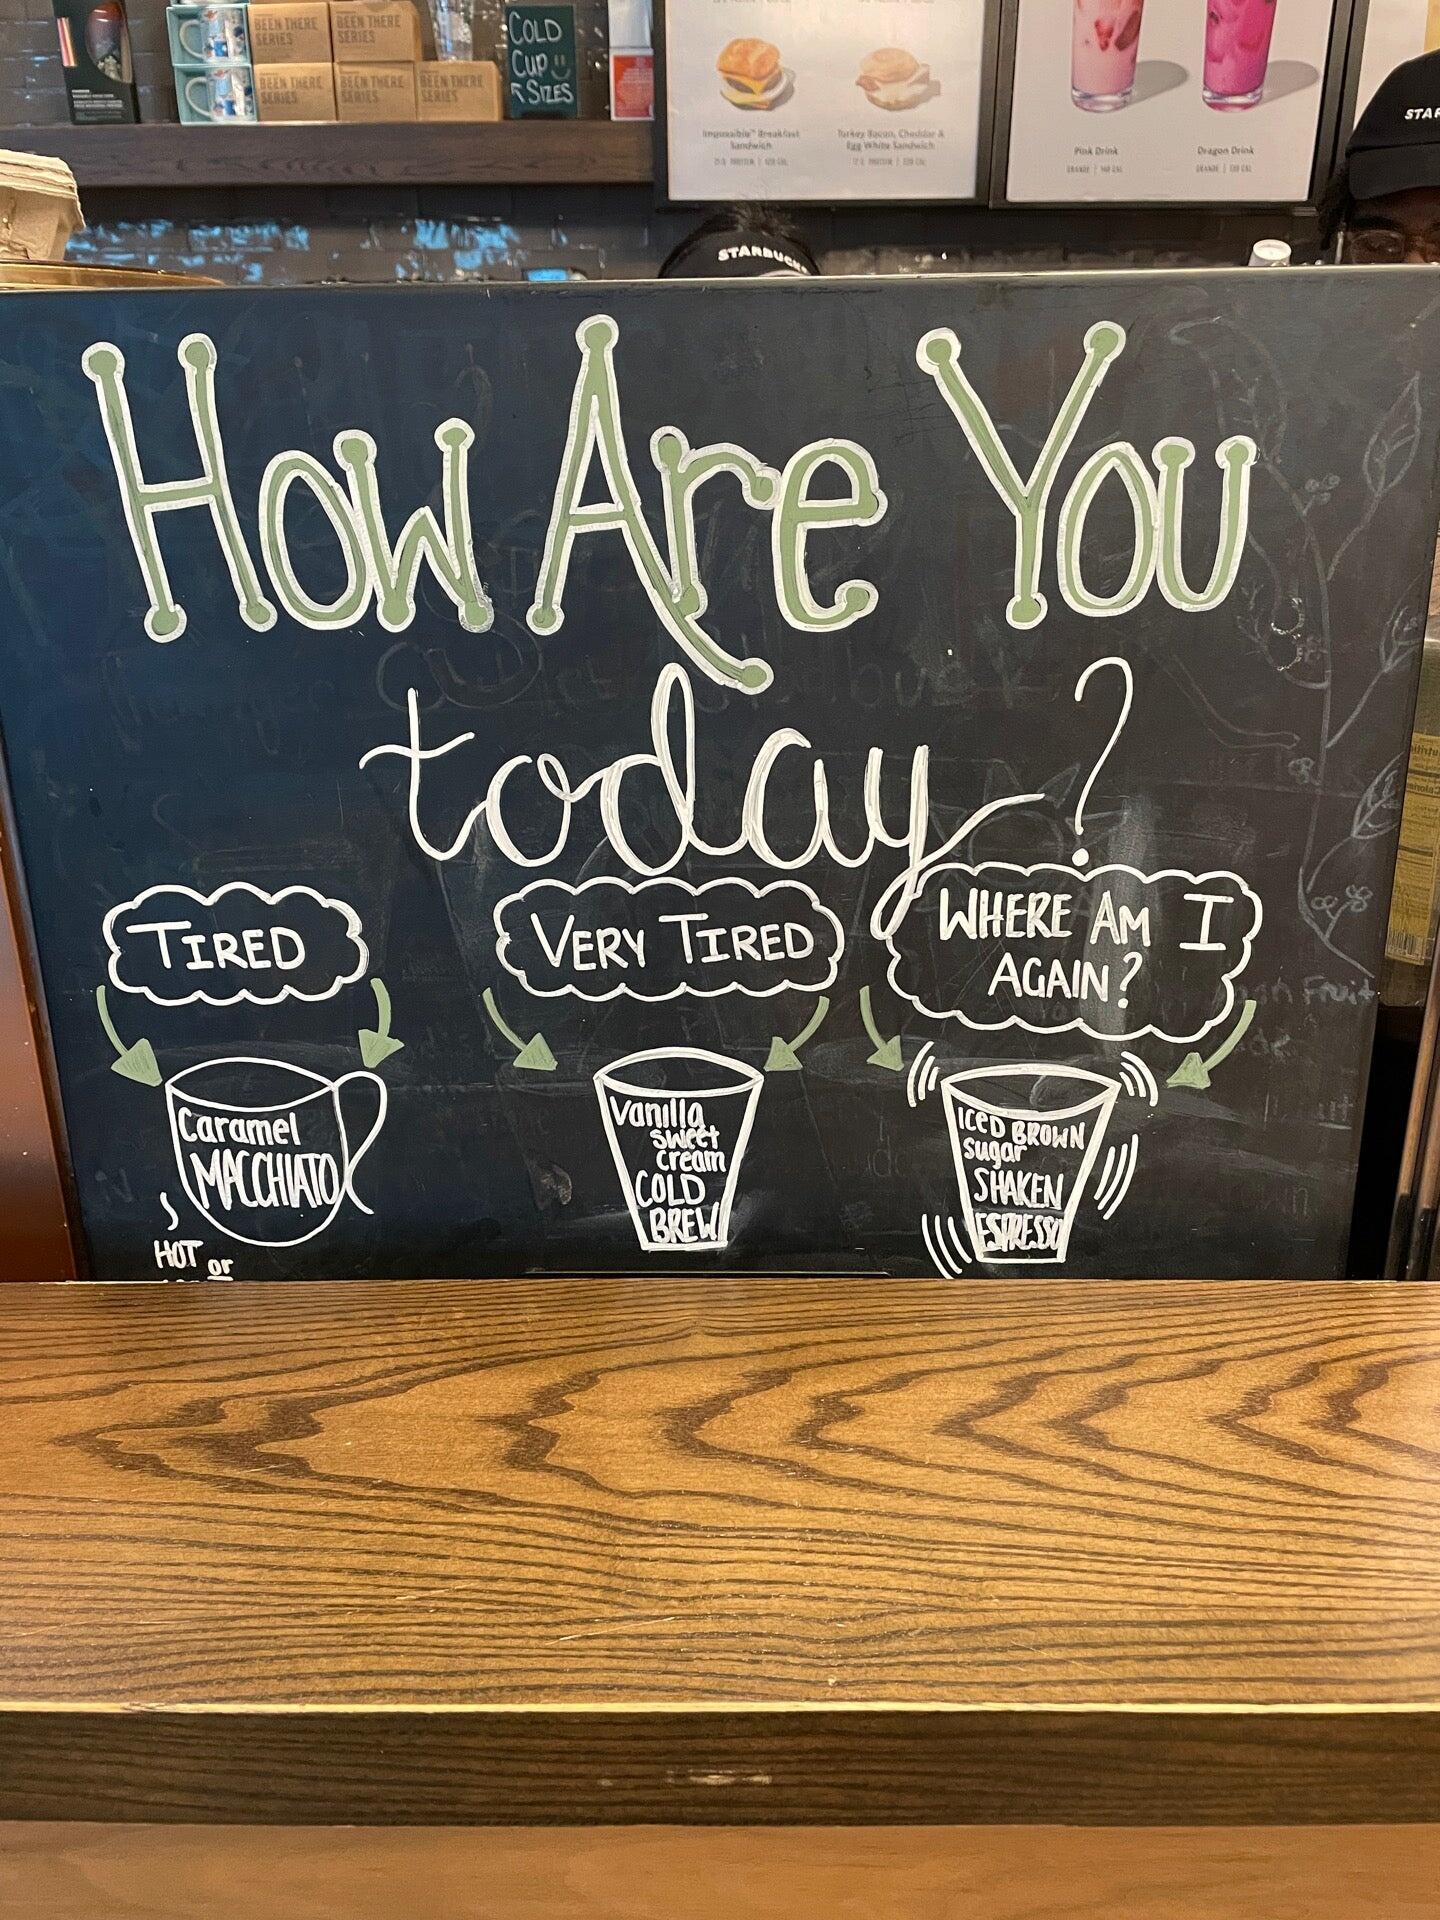 BEEN THERE
SERIES
BEEN THERE
SERIES
BEEN THERE
SERIES
BEEN THERE
SERIES
BEEN THERE
SERIES
COLD
Cup
SIZES
Impossible™ Breakfast
Sandwich
Turkey Bacon, Cheddar &
Egg White Sandwich
Pink Drink
GRANDE | 140 CAL
Dragon Drink
GRANDE | 130 CAL
STAR
STARBUCKS
How Are You
today?
TIRED
VERY TIRED
WHERE AM I
AGAIN?
Caramel
MACCHIATO
HOT or
Vanilla
sweet
cream
COLD
BREW
ICED BROWN
sugar
SHAKEN
ESPRESSO